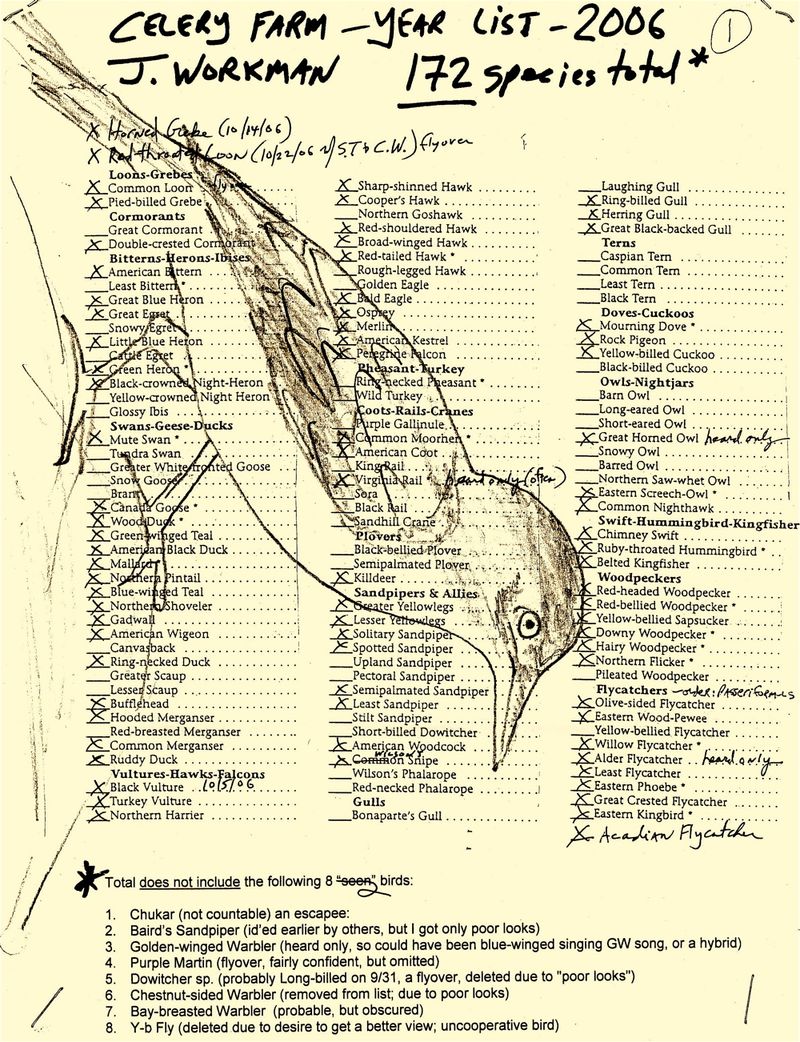 CELERY FARM – YEAR LIST – 2006 1
J. WORKMAN 172 species total *
X Horned Grebe (10/14/06)
X Red throated Loon (10/22/06 w/ S.T & C.W.) flyover
Loons-Grebes
X Common Loon fly
X Pied-billed Grebe
Cormorants
Great Cormorant
X Double-crested Cormorant
Bitterns-Herons-Ibises
X American Bittern
Least Bittern *
X Great Blue Heron
X Great Egret
Snowy Egret
X Little Blue Heron
Cattle Egret
X Green Heron *
X Black-crowned Night-Heron
Yellow-crowned Night Heron
Glossy Ibis
Swans-Geese-Ducks
X Mute Swan *
Tundra Swan
Greater White-fronted Goose
Snow Goose
Brant
X Canada Goose *
X Wood Duck *
X Green-winged Teal
X American Black Duck
X Mallard
X Northern Pintail
X Blue-winged Teal
X Northern Shoveler
X Gadwall
X American Wigeon
Canvasback
X Ring-necked Duck
Greater Scaup
Lesser Scaup
X Bufflehead
X Hooded Merganser
Red-breasted Merganser
X Common Merganser
X Ruddy Duck
Vultures-Hawks-Falcons
X Black Vulture 10/5/06
X Turkey Vulture
X Northern Harrier
X Sharp-shinned Hawk
X Cooper's Hawk
Northern Goshawk
X Red-shouldered Hawk
X Broad-winged Hawk
X Red-tailed Hawk *
Rough-legged Hawk
Golden Eagle
X Bald Eagle
X Osprey
X Merlin
X American Kestrel
X Peregrine Falcon
Pheasant-Turkey
Ring-necked Pheasant *
Wild Turkey
Coots-Rails-Cranes
Purple Gallinule
X Common Moorhen *
X American Coot
King Rail
X Virginia Rail heard only (often)
Sora
Black Rail
Sandhill Crane
Plovers
Black-bellied Plover
Semipalmated Plover
X Killdeer
Sandpipers & Allies
X Greater Yellowlegs
X Lesser Yellowlegs
X Solitary Sandpiper
X Spotted Sandpiper
Upland Sandpiper
Pectoral Sandpiper
X Semipalmated Sandpiper
X Least Sandpiper
Stilt Sandpiper
Short-billed Dowitcher
X American Woodcock
Wilson's
X Common Snipe
Wilson's Phalarope
Red-necked Phalarope
Gulls
Bonaparte's Gull
Laughing Gull
X Ring-billed Gull
X Herring Gull
X Great Black-backed Gull
Terns
Caspian Tern
Common Tern
Least Tern
Black Tern
Doves-Cuckoos
X Mourning Dove *
X Rock Pigeon
X Yellow-billed Cuckoo
Black-billed Cuckoo
Owls-Nightjars
Barn Owl
Long-eared Owl
Short-eared Owl
X Great Horned Owl heard only
Snowy Owl
Barred Owl
Northern Saw-whet Owl
X Eastern Screech-Owl *
X Common Nighthawk
Swift-Hummingbird-Kingfisher
X Chimney Swift
X Ruby-throated Hummingbird *
X Belted Kingfisher
Woodpeckers
X Red-headed Woodpecker
X Red-bellied Woodpecker *
X Yellow-bellied Sapsucker
X Downy Woodpecker *
X Hairy Woodpecker *
X Northern Flicker *
Pileated Woodpecker
Flycatchers – order: PASSERIFORMES
X Olive-sided Flycatcher
X Eastern Wood-Pewee
Yellow-bellied Flycatcher
X Willow Flycatcher *
X Alder Flycatcher heard only
X Least Flycatcher
X Eastern Phoebe *
X Great Crested Flycatcher
X Eastern Kingbird *
X Acadian Flycatcher
* Total does not include the following 8 "seen" birds:
1. Chukar (not countable) an escapee:
2. Baird's Sandpiper (id'ed earlier by others, but I got only poor looks)
3. Golden-winged Warbler (heard only, so could have been blue-winged singing GW song, or a hybrid)
4. Purple Martin (flyover, fairly confident, but omitted)
5. Dowitcher sp. (probably Long-billed on 9/31, a flyover, deleted due to "poor looks")
6. Chestnut-sided Warbler (removed from list; due to poor looks)
7. Bay-breasted Warbler (probable, but obscured)
8. Y-b Fly (deleted due to desire to get a better view; uncooperative bird)